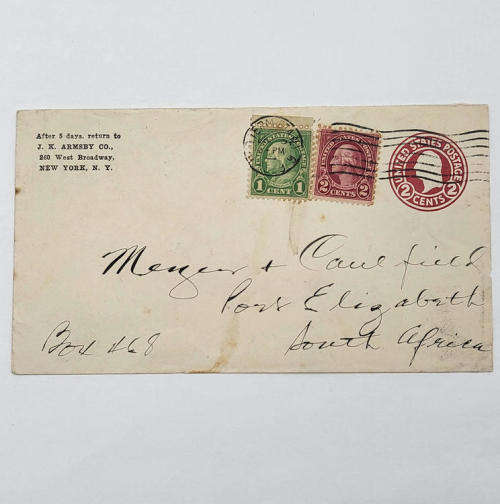 After 5 days, return to
J. K. ARMSBY CO.,
260 West Broadway,
NEW YORK, N. Y.
PM
UNITED STATES
1 CENT 1
2 CENTS 2
UNITED STATES POSTAGE
2 CENTS 2
Meyer + Caulfield
Port Elizabeth
Box 468 South Africa